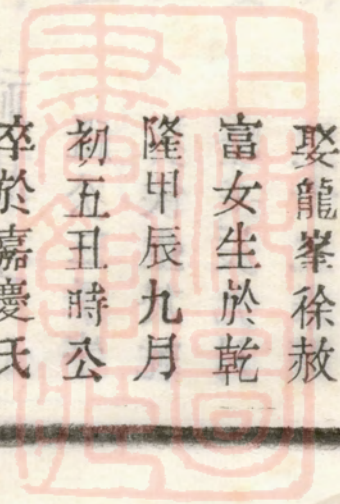 娶龍峯徐赦
富女生於乾
隆甲辰九月
初五丑時公
卒於嘉慶氏